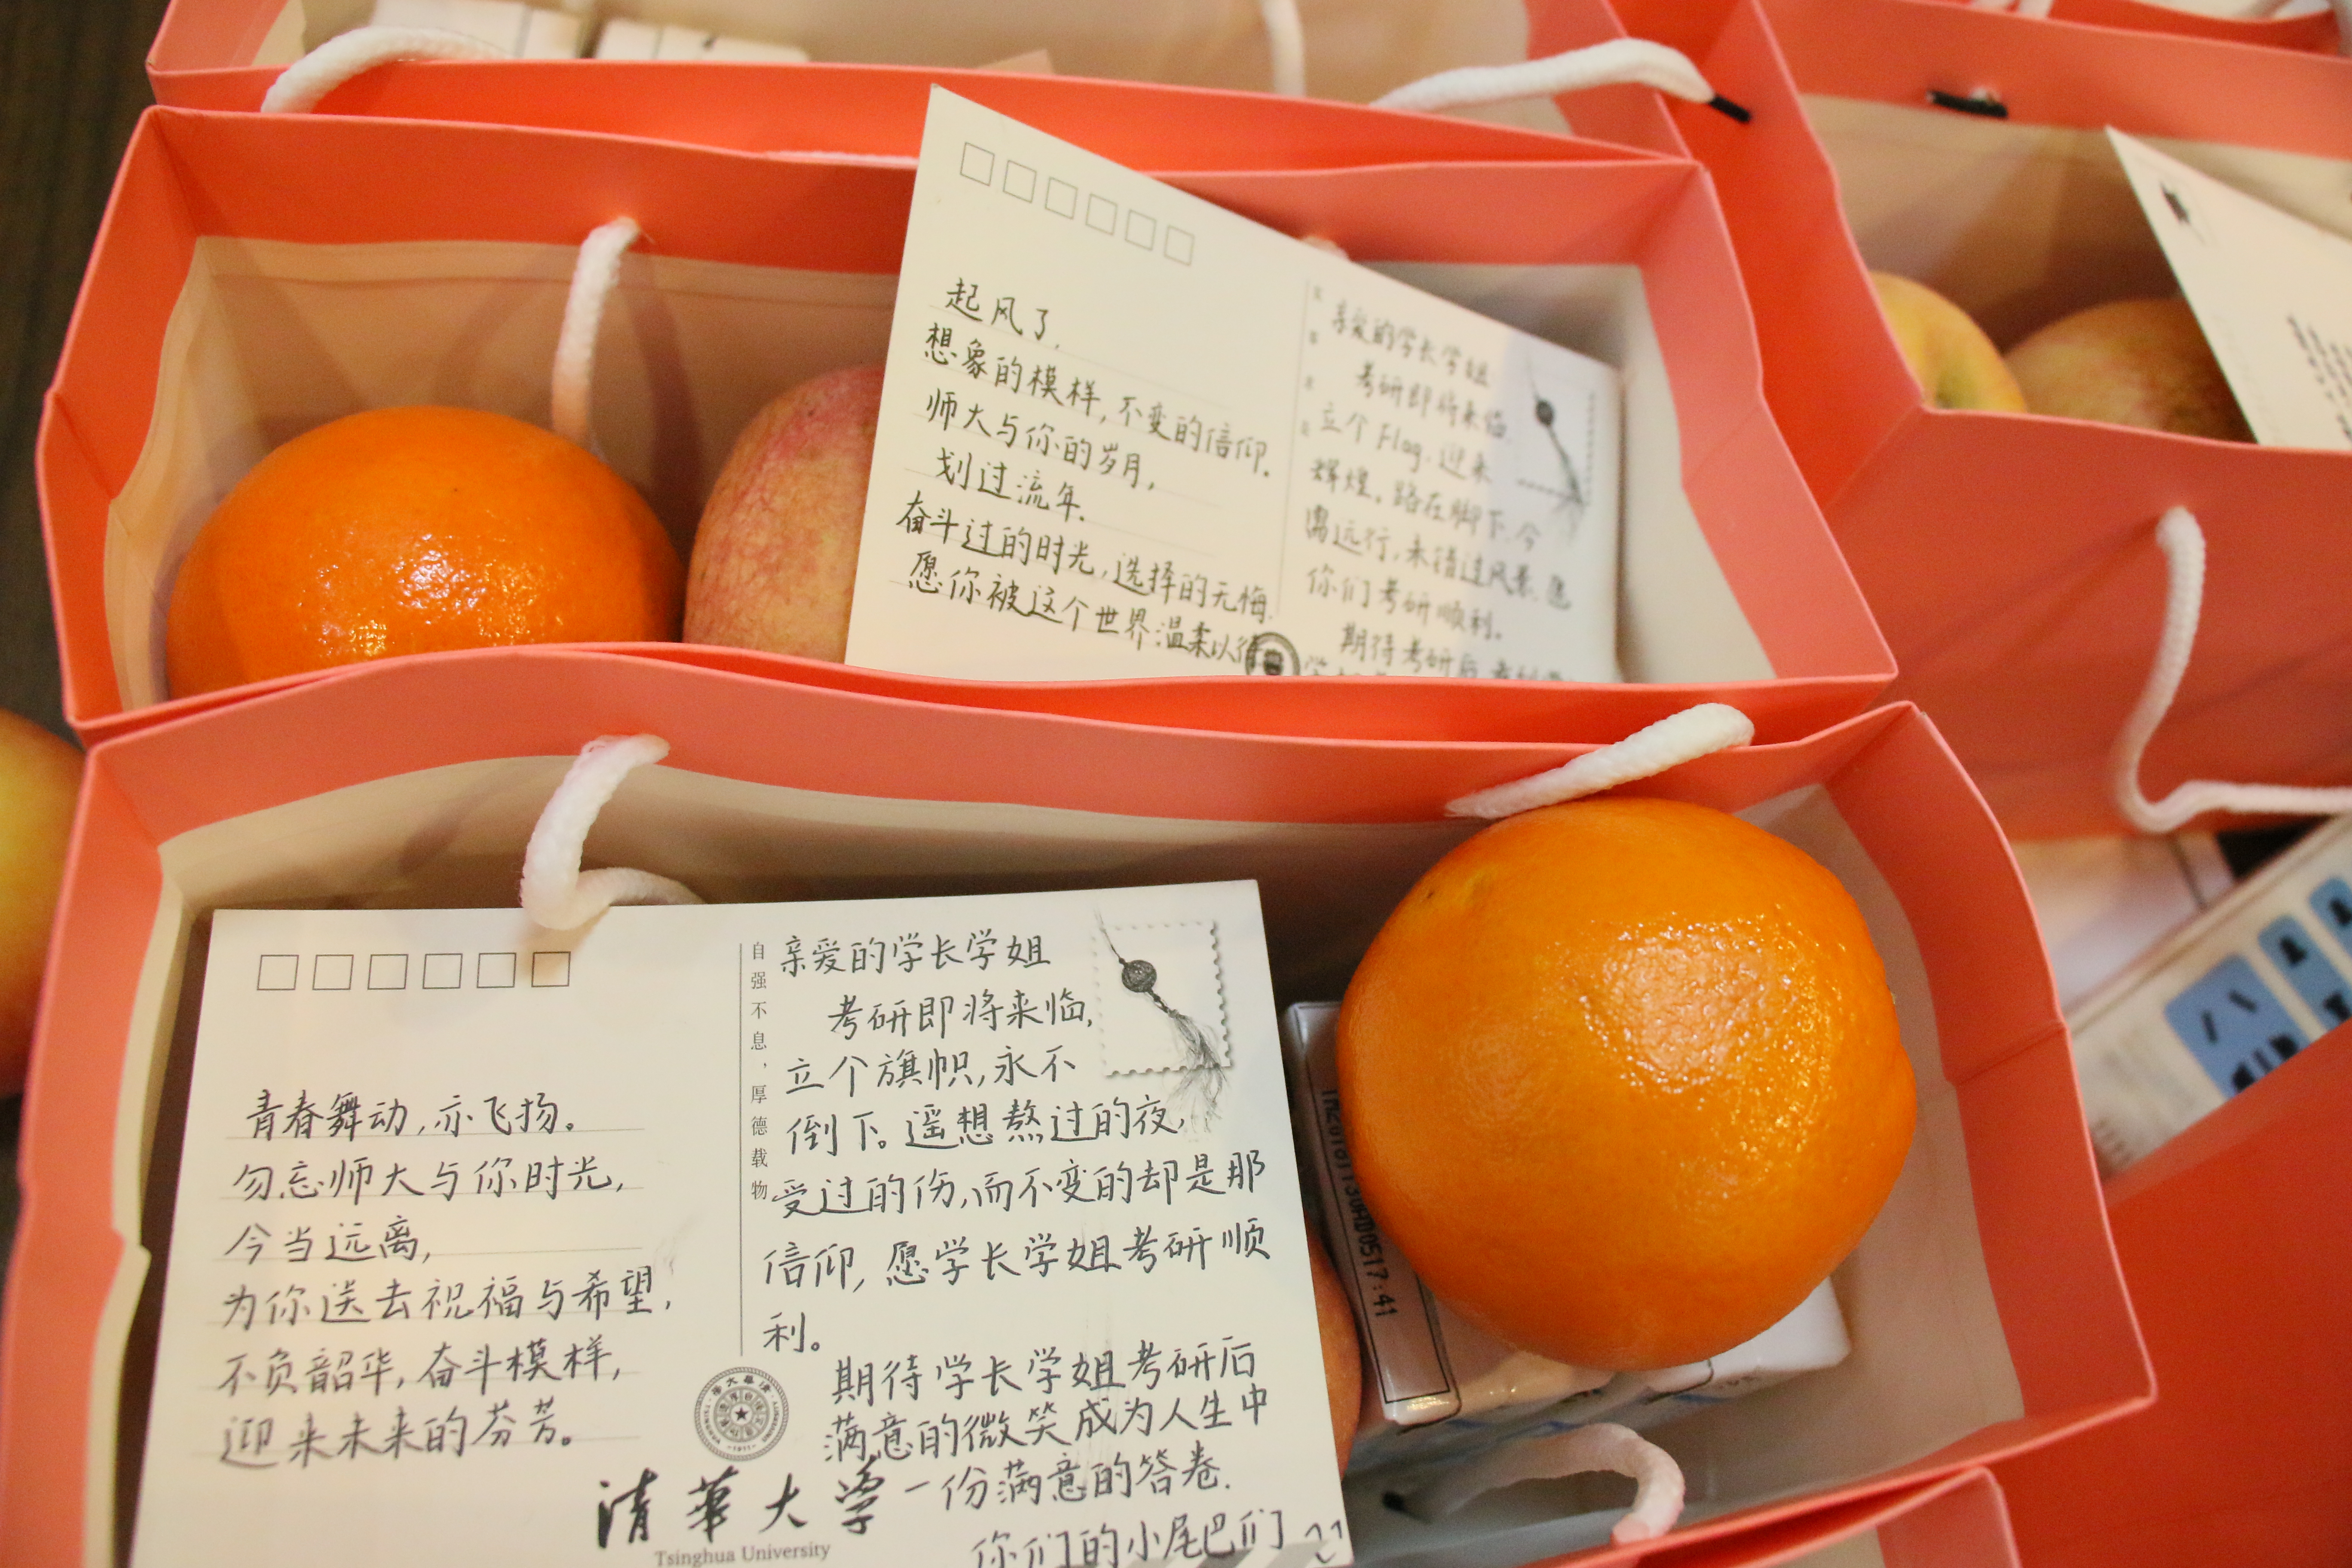 起风了,
想象的模样,不变的信仰.
师大与你的岁月,
划过流年.
奋斗过的时光,选择的无悔.
愿你被这个世界温柔以待
亲爱的学长学姐
考研即将来临
立个Flag.迎来
辉煌。路在脚下.今
远行,未错过风景.愿
你们考研顺利。
期待考研后
青春舞动,亦飞扬。
勿忘师大与你时光,
今当远离,
为你送去祝福与希望,
不负韶华,奋斗模样,
迎来未来的芬芳。
自强不息,厚德载物
亲爱的学长学姐
考研即将来临,
立个旗帜,永不
倒下。遥想熬过的夜,
受过的伤,而不变的却是那
信仰,愿学长学姐考研顺
利。
期待学长学姐考研后
满意的微笑成为人生中
一份满意的答卷.
你们的小尾巴们
清華大學
Tsinghua University